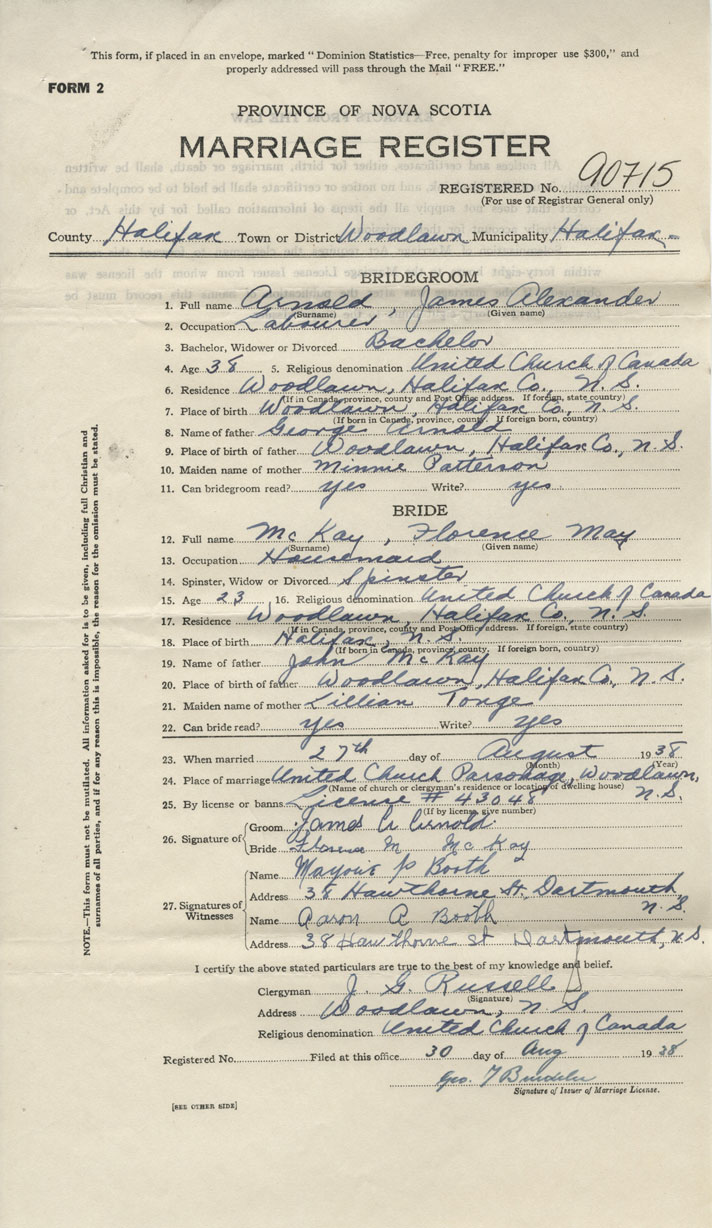 This form, if placed in an envelope, marked " Dominion Statistics—Free, penalty for improper use $300," and
properly addressed will pass through the Mail " FREE."
FORM 2
PROVINCE OF NOVA SCOTIA
MARRIAGE REGISTER
REGISTERED No. 90715
(For use of Registrar General only)
County Halifax Town or District Woodlawn Municipality Halifax
BRIDEGROOM
1. Full name Arnold, James Alexander
(Surname) (Given name)
2. Occupation Labourer
3. Bachelor, Widower or Divorced Bachelor
4. Age 38 5. Religious denomination United Church of Canada
6. Residence Woodlawn, Halifax Co., N. S.
(If in Canada, province, county and Post Office address. If foreign, state country)
7. Place of birth Woodlawn, Halifax Co., N. S.
(If born in Canada, province, county. If foreign born, country)
8. Name of father George Arnold
9. Place of birth of father Woodlawn, Halifax Co., N. S.
10. Maiden name of mother Minnie Patterson
11. Can bridegroom read? yes Write? yes
BRIDE
12. Full name McKay, Florence May
(Surname) (Given name)
13. Occupation Housemaid
14. Spinster, Widow or Divorced Spinster
15. Age 23 16. Religious denomination United Church of Canada
17. Residence Woodlawn, Halifax Co., N. S.
(If in Canada, province, county and Post Office address. If foreign, state country)
18. Place of birth Halifax, N. S.
(If born in Canada, province, county. If foreign born, country)
19. Name of father John McKay
20. Place of birth of father Woodlawn, Halifax Co., N. S.
21. Maiden name of mother Lillian Tonge
22. Can bride read? yes Write? yes
23. When married 27th day of August 1938
(Month) (Year)
24. Place of marriage United Church Parsonage, Woodlawn,
(Name of church or clergyman's residence or location of dwelling house)
N. S.
25. By license or banns License # 43048
(If by license, give number)
26. Signature of Groom James A Arnold
Bride Florence M McKay
27. Signatures of Witnesses
Name P Booth
Address 38 Hawthorne St. Dartmouth
N. S.
Name Aaron A Booth
Address 38 Hawthorne st Dartmouth, N.S.
I certify the above stated particulars are true to the best of my knowledge and belief.
Clergyman J. G. Russell
(Signature)
Address Woodlawn, N S.
Religious denomination United Church of Canada
Registered No. Filed at this office 30 day of Aug 1938
Geo. T
Signature of Issuer of Marriage License.
[SEE OTHER SIDE]
NOTE.—This form must not be mutilated. All information asked for is to be given, including full Christian and
surnames of all parties, and if for any reason this is impossible, the reason for the omission must be stated.